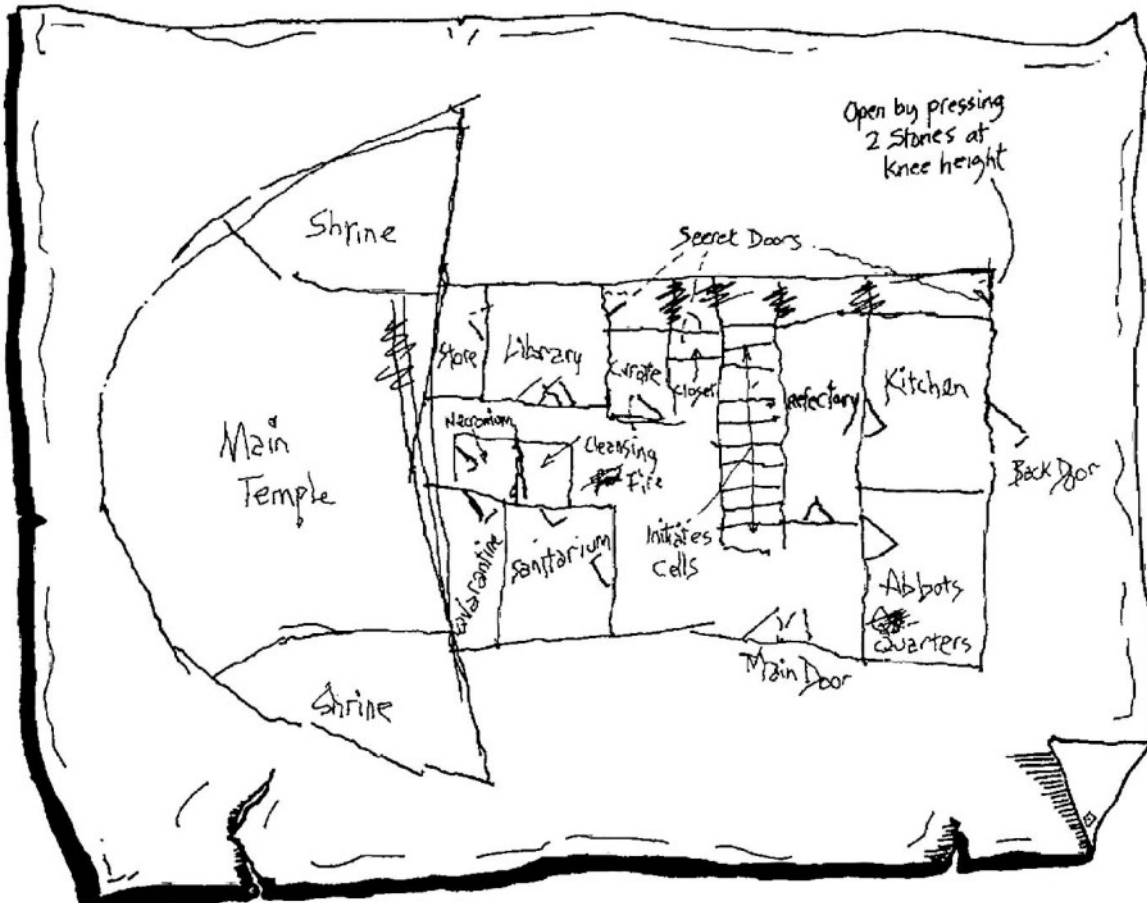 Open by pressing
2 Stones at
Knee height
Secret Doors
Shrine
Store
Library
Curate
Closet
Refectory
Kitchen
Main
Temple
Necromium
Cleansing
Fire
Back Door
Quarantine
Sanitarium
Initiates
Cells
Abbots
Quarters
Main Door
Shrine